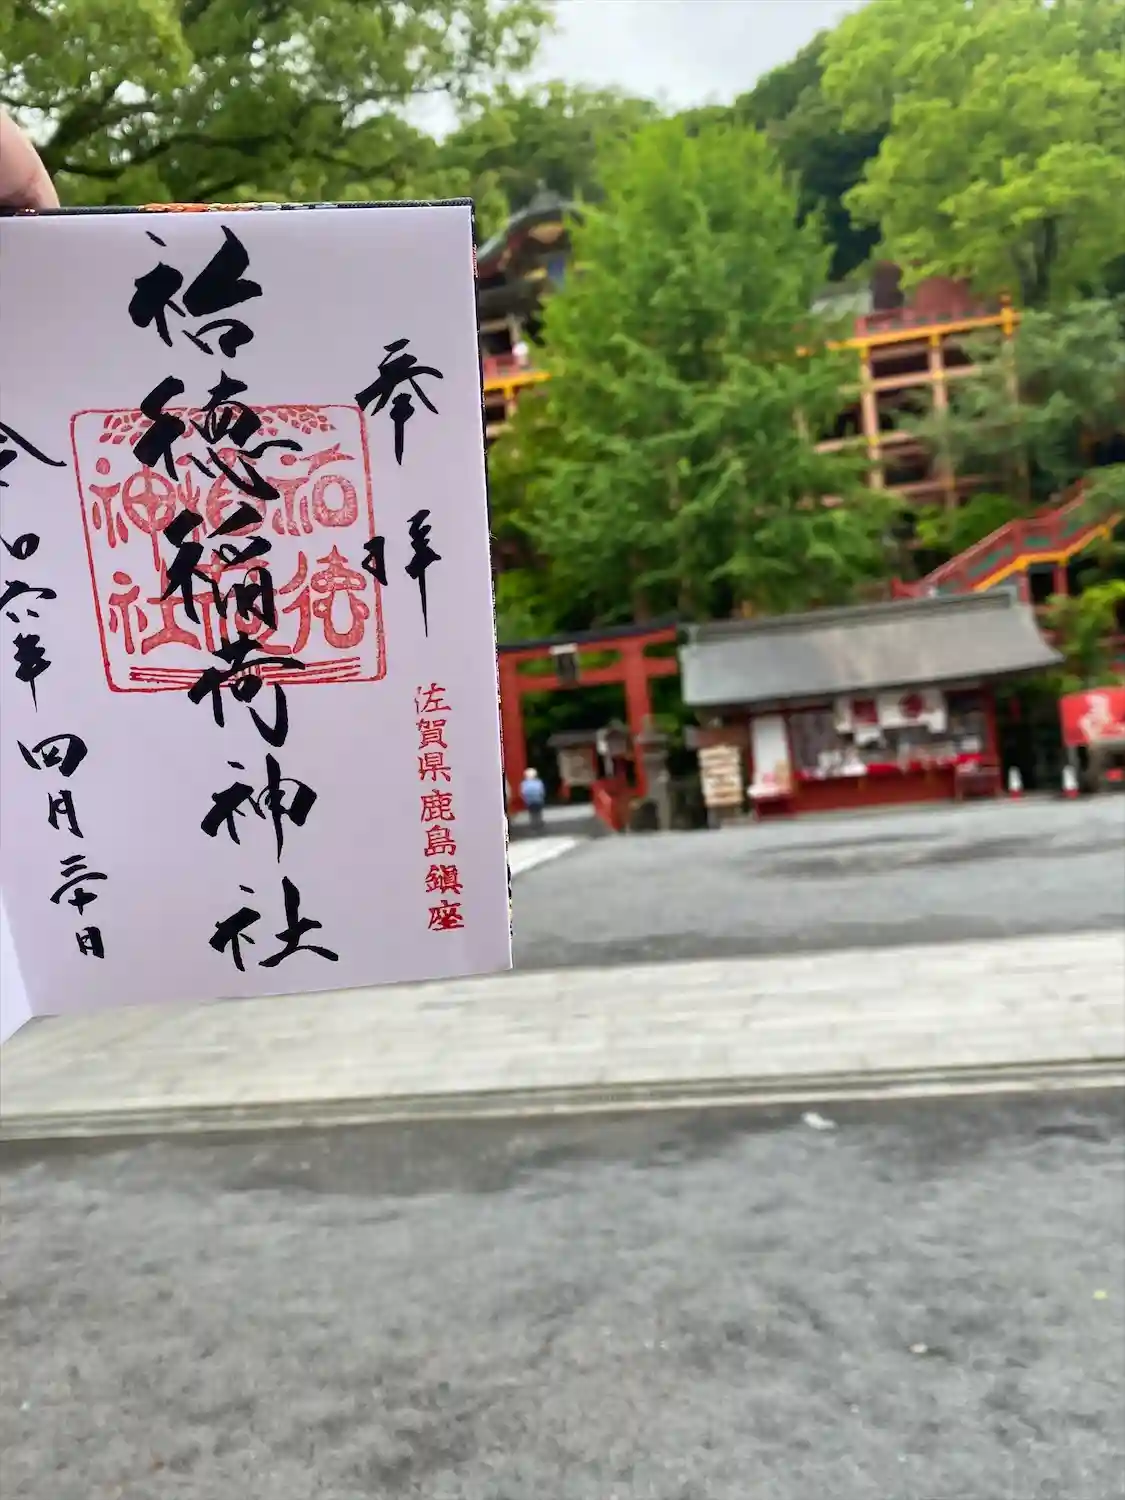 奉拝
佐賀県鹿島鎮座
祐徳稲荷神社
祐徳
稲荷
神社
令和六年四月三十日